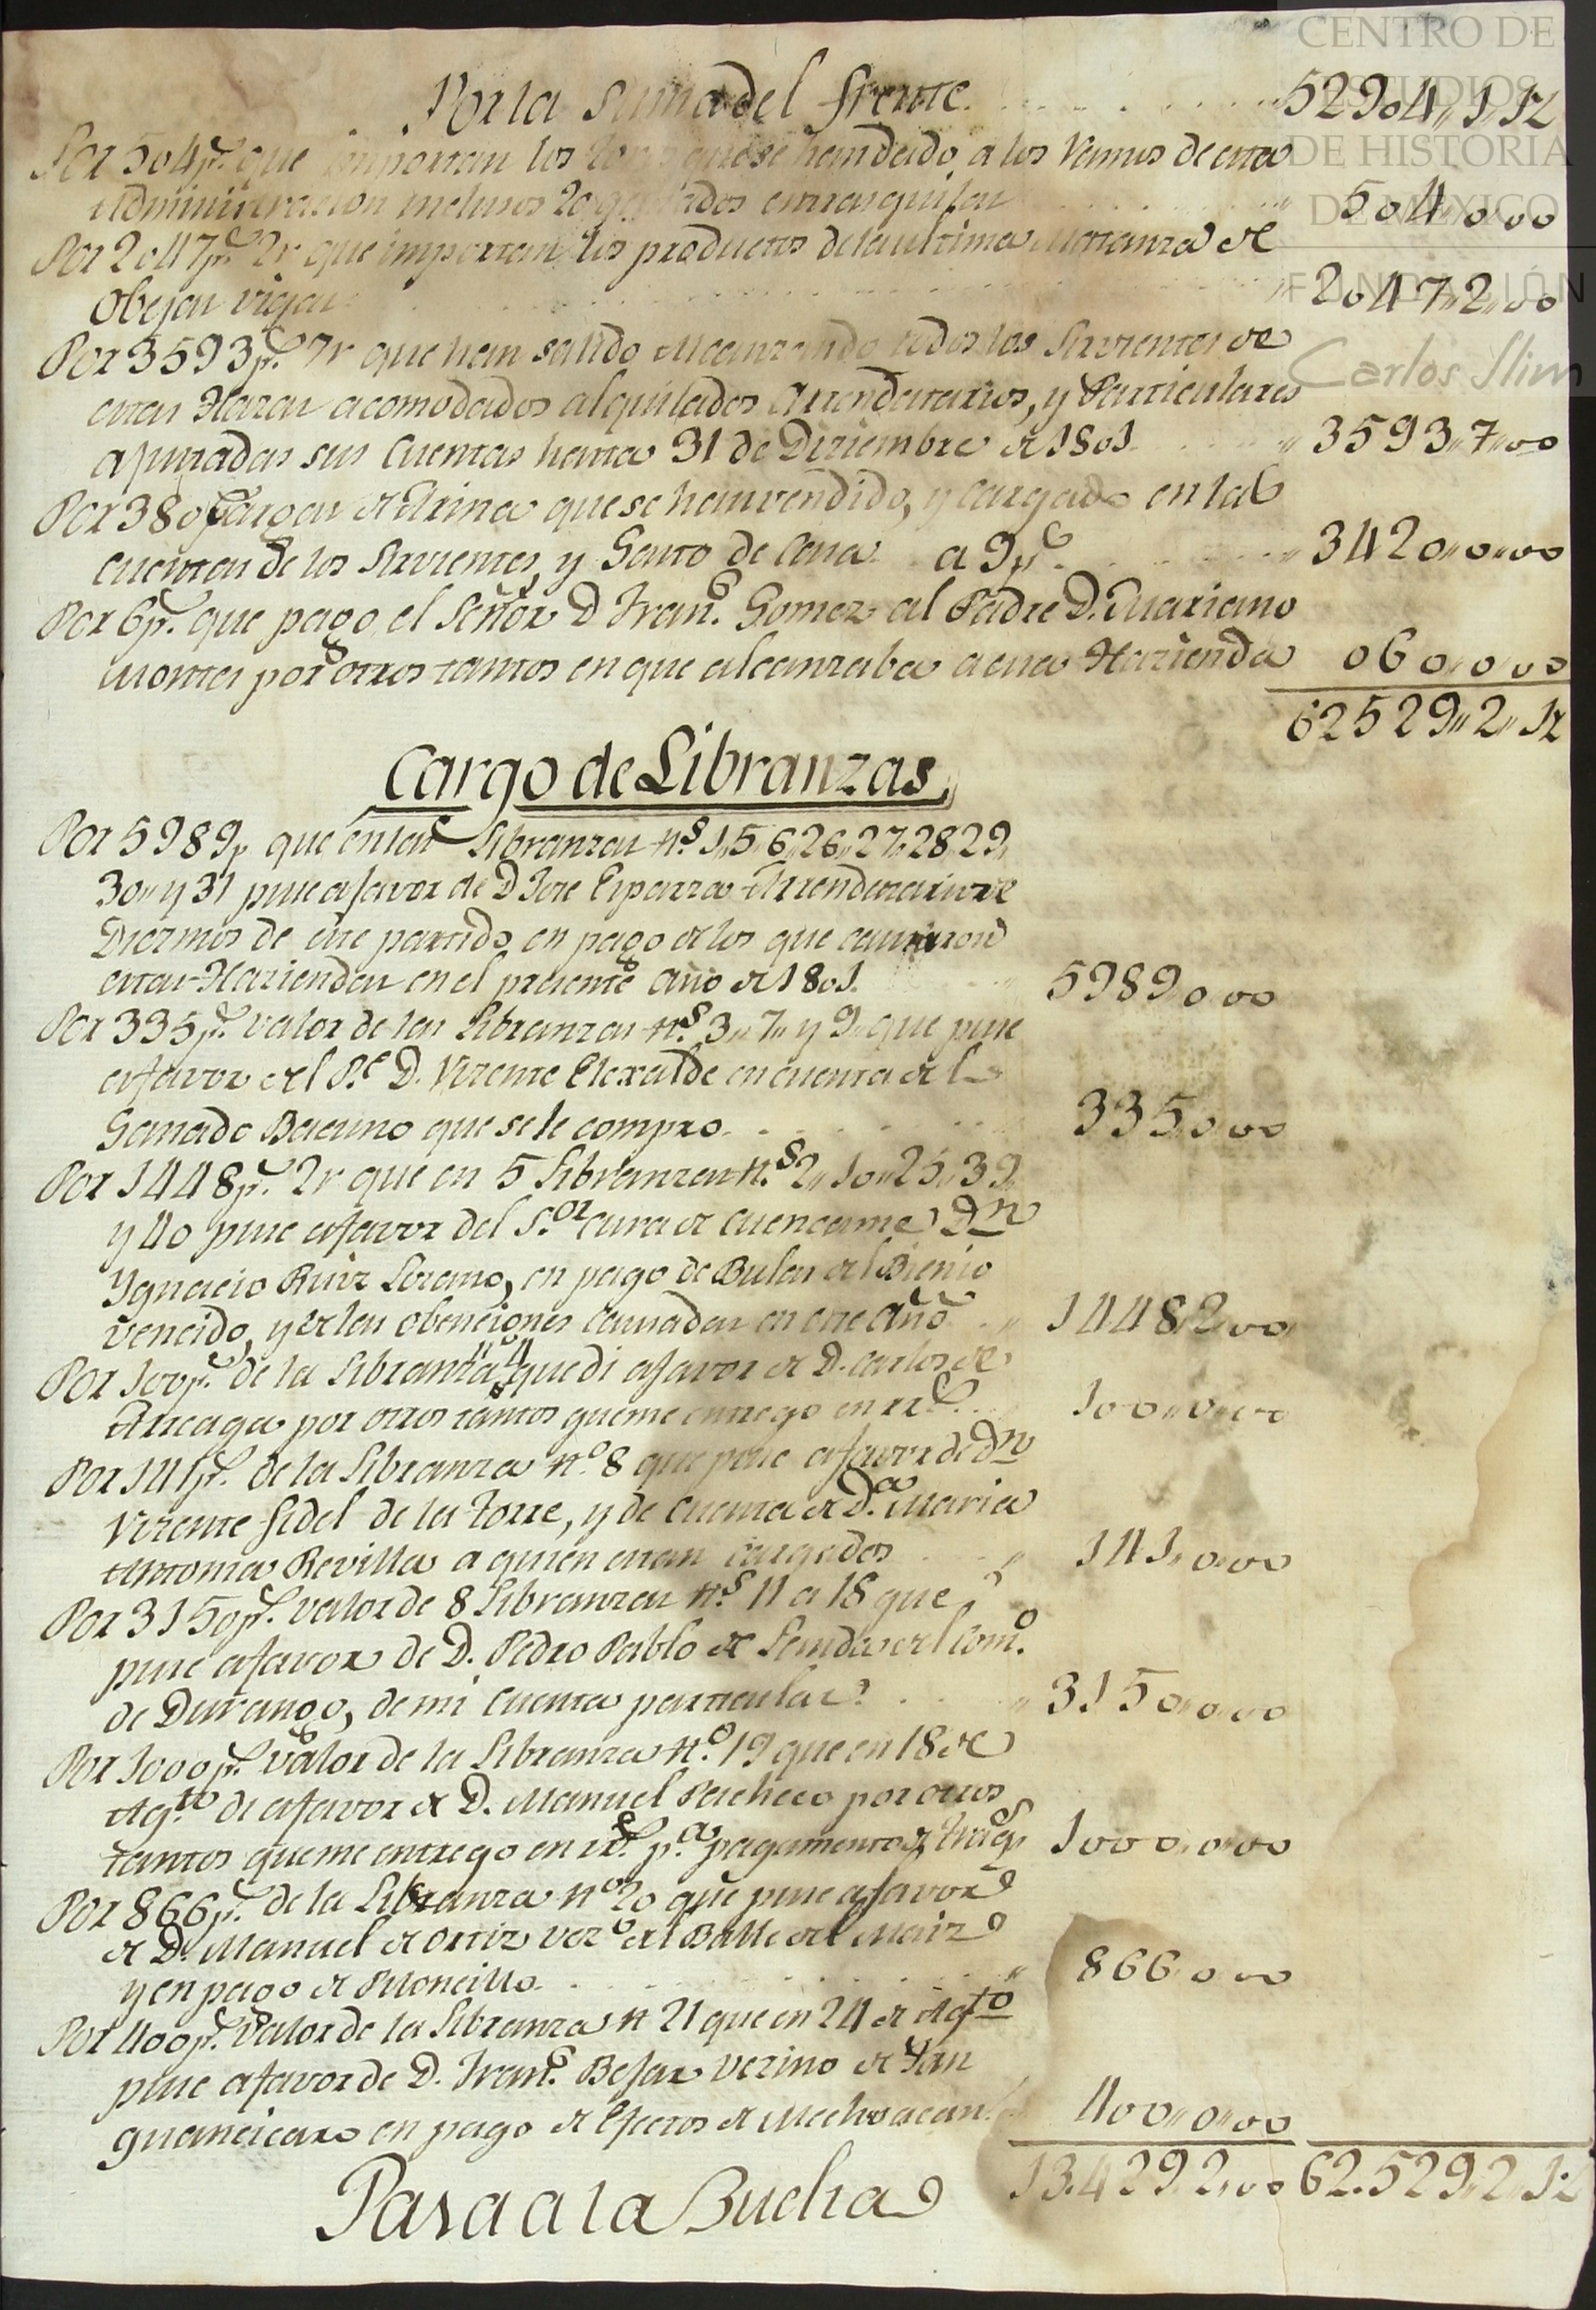 Por la suma del frente. 52904,,1,,1½
Por 504p.s que importan los que se han dado a los Vernus de esta
Administracion inclusos 20 entrasquilas 504,,0,,00
Por 2047p.s 2r que importan los productos de la ultima Matanza de
Obejas viejas 2047,,2,,00
Por 3593p.s 7r que han salido alcanzando todos los Sirvientes de
estas Hazas acomodados alquilados Arrendatarios, y Particulares
ajustadas sus Cuentas hasta 31 de Diziembre de 1801. 3593,,7,,00
Por 380 Cargas de Arina que se han vendido, y Cargado en las
cuentas de los Sirvientes, y Gasto de Casa a 9p.s 3420,,0,,00
Por 6p.s que pago el Señor D Fran.co Gomez al Padre D. Mariano
Montes por otros tantos en que alcanzaba a esta Hazienda 060,,0,,00
62529,,2,,1½
Cargo de Libranzas,
Por 5989p que en las Libranzas n.s 1,,5,,6,,26,,27,,28,,29,,
30,, y 31 puse a favor de D Jose Esparza Arrendatario de
Diezmos de este partido en pago de los que causaron
estas Haziendas en el presente año de 1801. 5989,,0,,00
Por 335p.s valor de las Libranzas n.s 3,,7,, y 9,, que puse
a favor del P.e D. Vizente Elexalde en cuenta del
Ganado Bacuno que se le compro. 335,,0,,00
Por 1448p.s 2r que en 5 Libranzas n.s 2,,10,,25,,39,,
y 40 puse a favor del S.or Cura de Cuencame Dn
Ygnacio Ruiz Lozano, en pago de Bulas del Bienio
vencido, y de las obenciones causadas en este Año 1448,,2,,00
Por 100p.s de la Libranza n.o 4 que di a favor de D. Carlos de
Arreaga por otros tantos que me entrego en rr.s 100,,0,,00
Por 141p.s de la Libranza n.o 8 que puse a favor de Dn
Vizente fidel de la Torre, y de Cuenta de D.a Maria
Antonia Revilla a quien estan Cargados 141,,0,,00
Por 3150p.s valor de 8 Libranzas n.s 11 a 18 que
puse a favor de D. Pedro Pablo de del Com.o
de Durango, de mi Cuenta particular 3150,,0,,00
Por 1000p.s valor de la Libranza n.o 19 que en 18 de
Ag.to di a favor de D. Manuel Pacheco por otros
tantos que me entrego en rr.s p.a pagamento de 1000,,0,,00
Por 866p.s de la Libranza n.o 20 que puse a favor
de D. Manuel de Ortiz vez.o del Balle del Maiz
y en pago de Piloncillo. 866,,0,,00
Por 400p.s valor de la Libranza n 21 que en 24 de Ag.to
puse a favor de D. Fran.co Bejar Vezino de Yan
guancicaro en pago de Efectos de Mechoacan. 400,,0,,00
13.429,,2,,00 62.529,,2,,1½
Pasa a la Buelta
CENTRO DE
ESTUDIOS
DE HISTORIA
DE MÉXICO
FUNDACIÓN
Carlos Slim